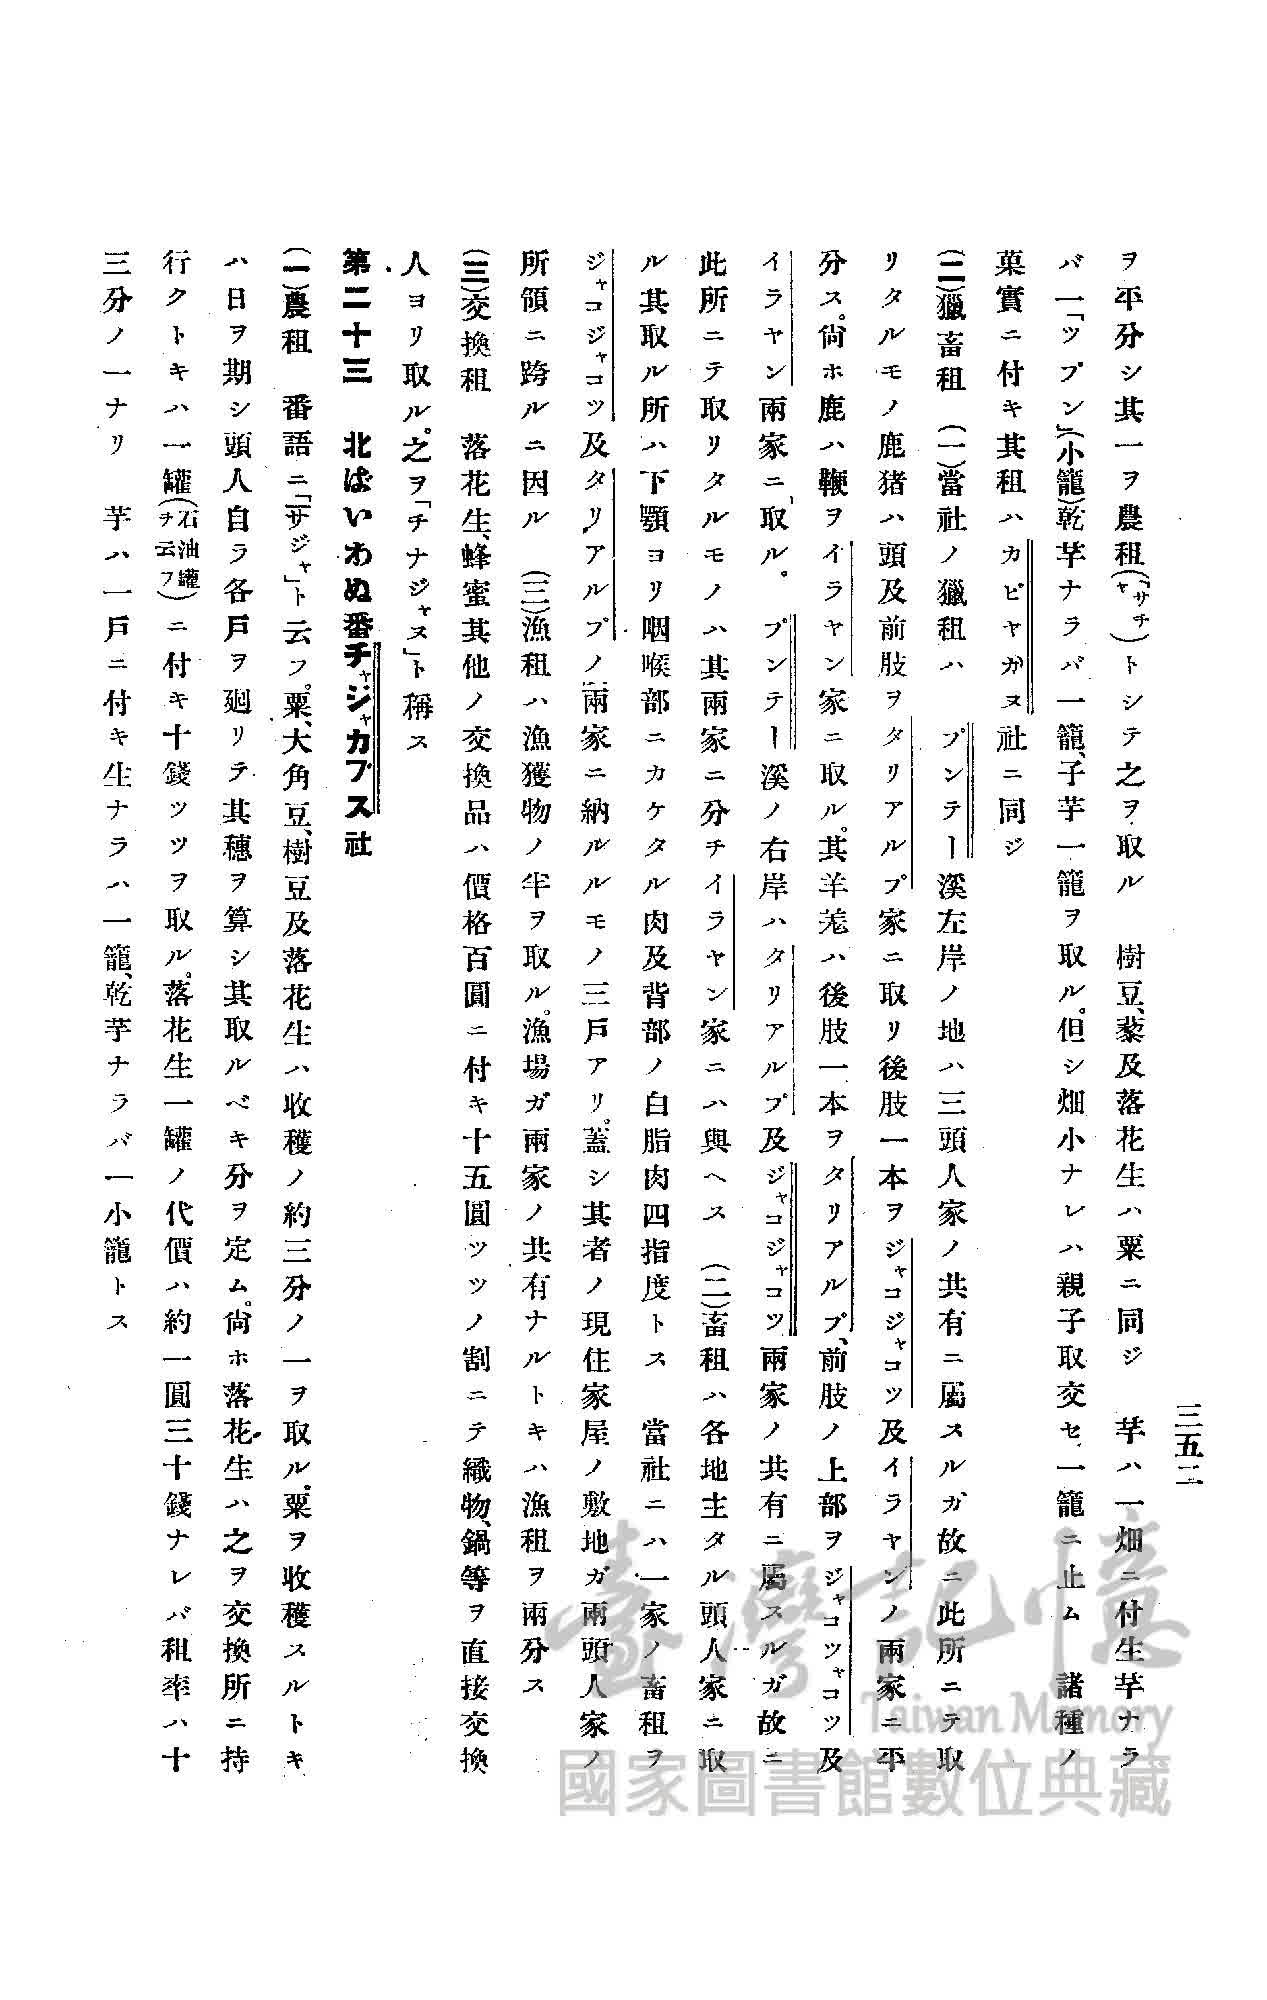 三五二
ヲ平分シ其一ヲ農租(「サチャ」)トシテ之ヲ取ル　樹豆、藜及落花生ハ粟ニ同ジ　芋ハ一畑ニ付生芋ナラ
バ一「ツプン」(小籠)乾芋ナラバ一籠、子芋一籠ヲ取ル。但シ畑小ナレハ親子取交セ、一籠ニ止ム　諸種ノ
菓實ニ付キ其租ハカピヤガヌ社ニ同ジ
(二)獵畜租　(一)當社ノ獵租ハ　プンテー溪左岸ノ地ハ三頭人家ノ共有ニ屬スルガ故ニ此所ニテ取
リタルモノ鹿猪ハ頭及前肢ヲタリアルプ家ニ取リ後肢一本ヲジャコジャコツ及イラヤンノ兩家ニ平
分ス。尙ホ鹿ハ鞭ヲイラヤン家ニ取ル。其羊羌ハ後肢一本ヲタリアルプ、前肢ノ上部ヲジャコツャコツ及
イラヤン兩家ニ取ル。　プンテー溪ノ右岸ハタリアルプ及ジャコジャコツ兩家ノ共有ニ屬スルガ故ニ
此所ニテ取リタルモノハ其兩家ニ分チイラヤン家ニハ與ヘス　(二)畜租ハ各地主タル頭人家ニ取
ル其取ル所ハ下顎ヨリ咽喉部ニカケタル肉及背部ノ白脂肉四指度トス　當社ニハ一家ノ畜租ヲ
ジャコジャコツ及タリアルプノ兩家ニ納ルルモノ三戸アリ。蓋シ其者ノ現住家屋ノ敷地ガ兩頭人家ノ
所領ニ跨ルニ因ル　(三)漁租ハ漁獲物ノ半ヲ取ル。漁場ガ兩家ノ共有ナルトキハ漁租ヲ兩分ス
(三)交換租　落花生、蜂蜜其他ノ交換品ハ價格百圓ニ付キ十五圓ツツノ割ニテ織物、鍋等ヲ直接交換
人ヨリ取ル。之ヲ「チナジャヌ」ト稱ス
第二十三　北ぱいわぬ番チャジャカブス社
(一)農租　番語ニ「サジャ」ト云フ。粟、大角豆、樹豆及落花生ハ收穫ノ約三分ノ一ヲ取ル。粟ヲ收穫スルトキ
ハ日ヲ期シ頭人自ラ各戸ヲ廻リテ其穗ヲ算シ其取ルベキ分ヲ定ム。尙ホ落花生ハ之ヲ交換所ニ持
行クトキハ一罐(石油罐ヲ云フ)ニ付キ十錢ツツヲ取ル。落花生一罐ノ代價ハ約一圓三十錢ナレバ租率ハ十
三分ノ一ナリ　芋ハ一戸ニ付キ生ナラハ一籠、乾芋ナラバ一小籠トス
臺灣記憶
Taiwan Memory
國家圖書館數位典藏